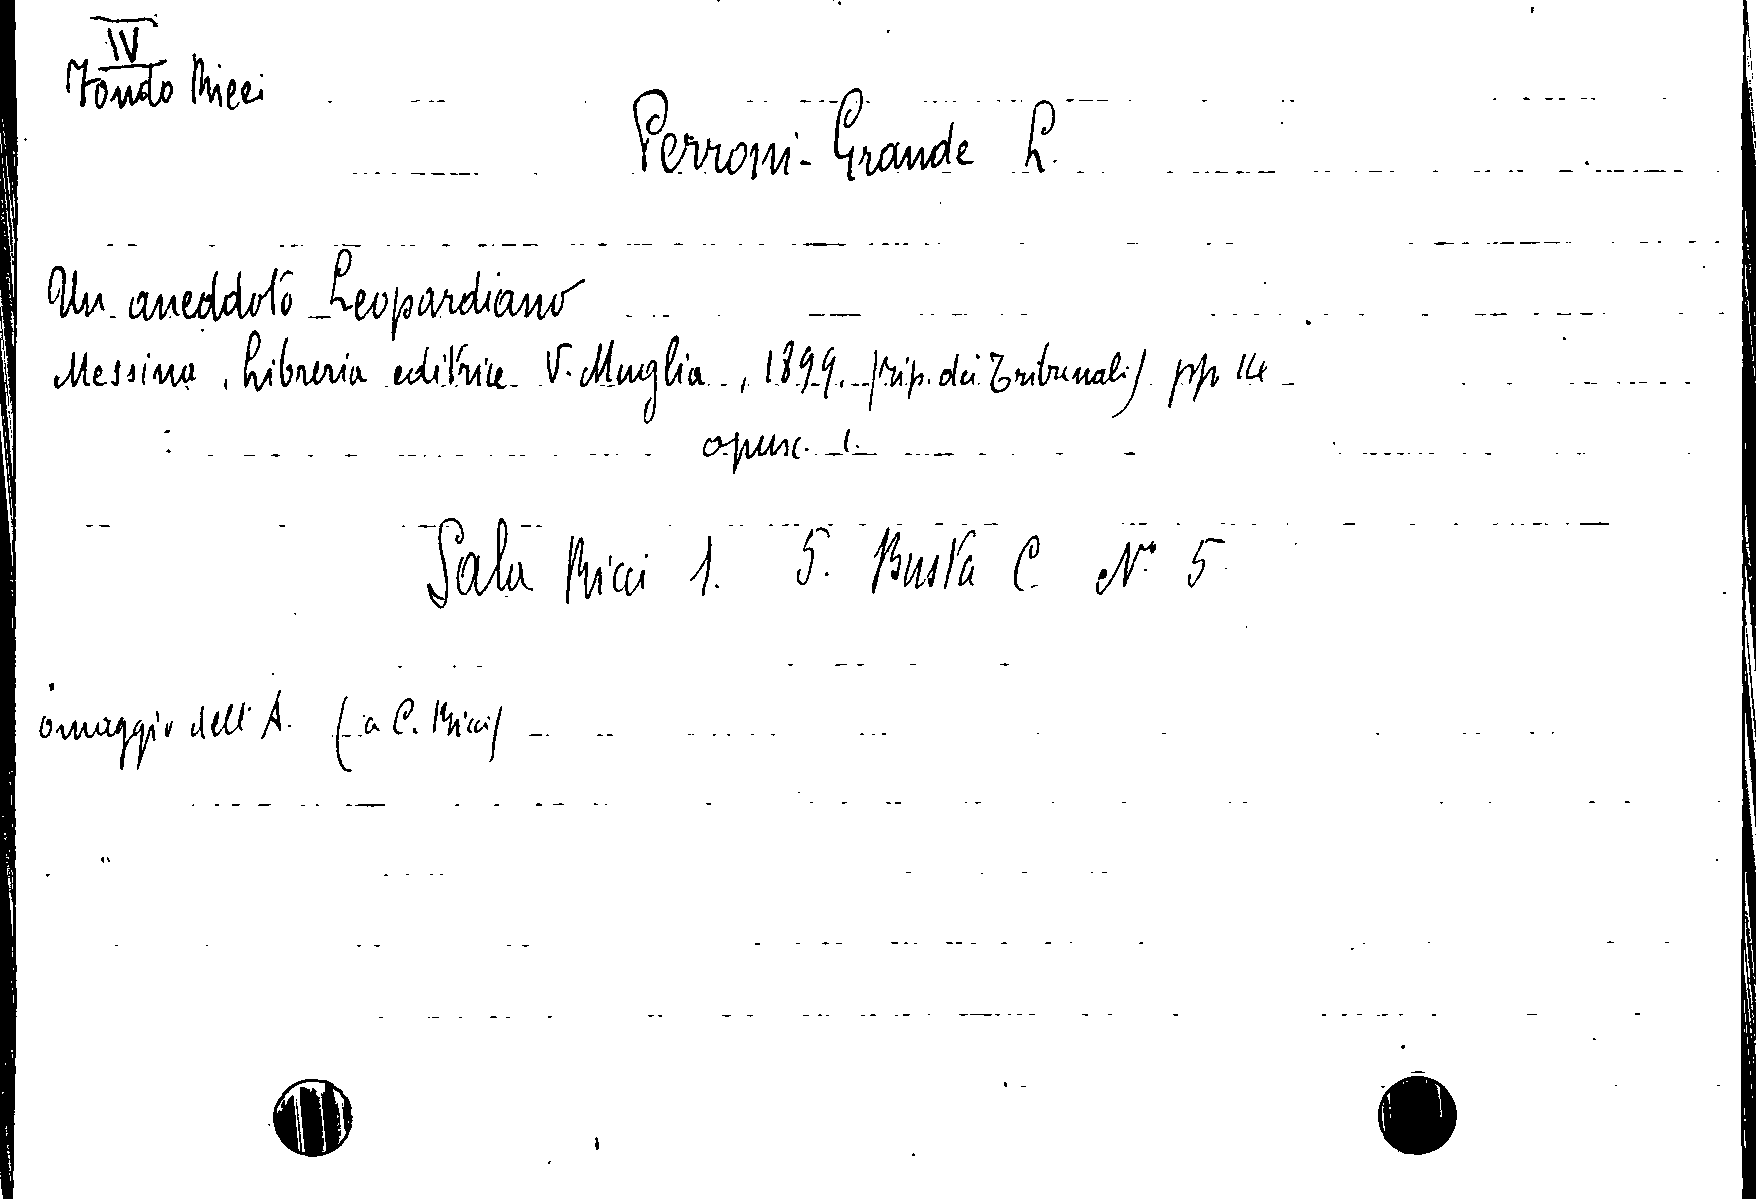 IV
Fondo Ricci
Perroni-Grande L.
Un aneddoto Leopardiano
Messina, Libreria editrice V. Muglia, 1899. (tip. dei Tribunali) pp 14
opusc. 1.
Sala Ricci 1. 5. Busta C. N° 5
omaggio dell'A. (a C. Ricci)